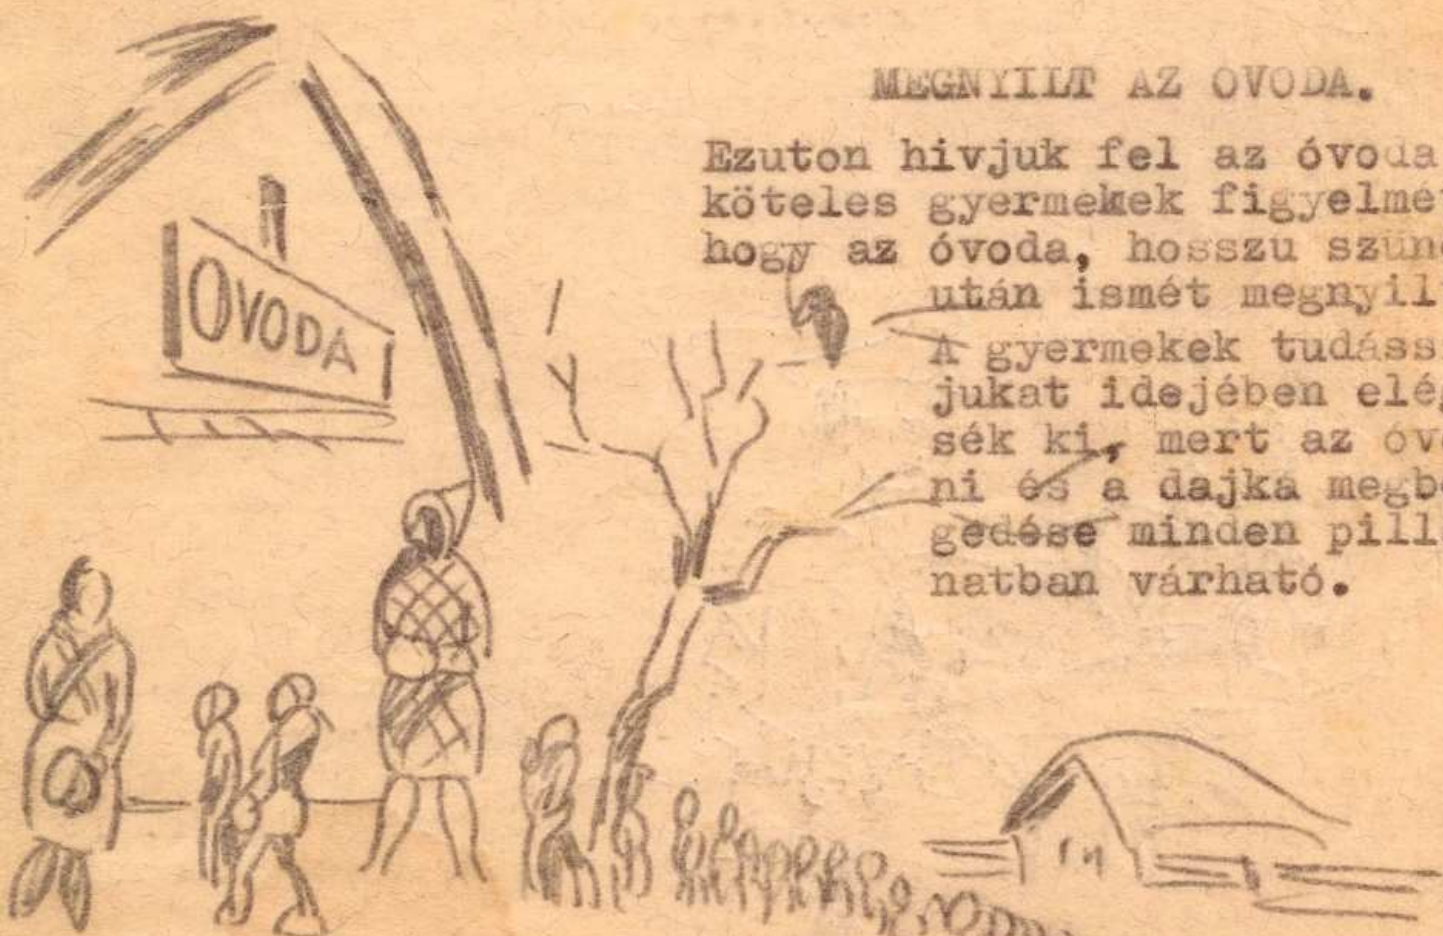 OVODA
MEGNYILT AZ OVODA.
Ezuton hivjuk fel az óvoda
köteles gyermekek figyelmé
hogy az óvoda, hosszu szün
után ismét megnyil
A gyermekek tudáss
jukat idejében elé
sék ki, mert az óv
ni és a dajka megb
gedése minden pill
natban várható.